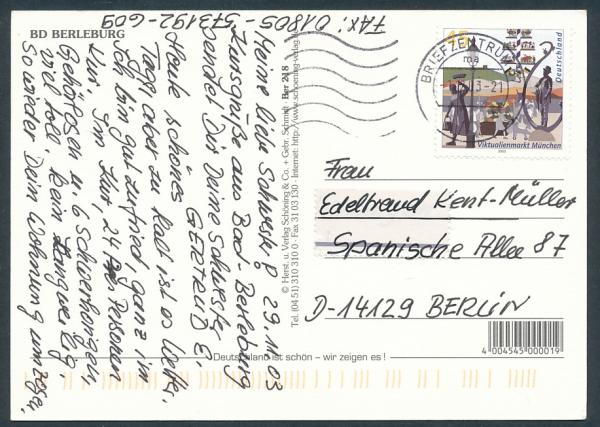 BD BERLEBURG
FAX: 01805-573192-609
Meine liebe Schwester 29.11.03
Kurzgrüße aus Bad-Berleburg
sendet Dir Deine Schwester
GERTRUD E.
Heute schönes
Tag, aber zu kalt ist es
Ich bin gut zufried, ganz in
Kur. Im Kurs 24 Personen
Gehörlosen u. 6 Schwerhörigen,
viel toll. Kein Langweilig.
Deine Wohnung umzogen.
© Herst. u. Verlag Schöning & Co. + Gebr. Schmidt · Ber 218
Tel. (04 51) 310 310 0 · Fax 31 03 130 · Internet: http://www.schoening-verlag.de
45
Deutschland
Viktualienmarkt München
2003
BRIEFZENTRUM
Frau
Edeltraud Kent-Müller
Spanische Allee 87
D-14129 BERLIN
4 004545 000019
Deutschland ist schön – wir zeigen es !